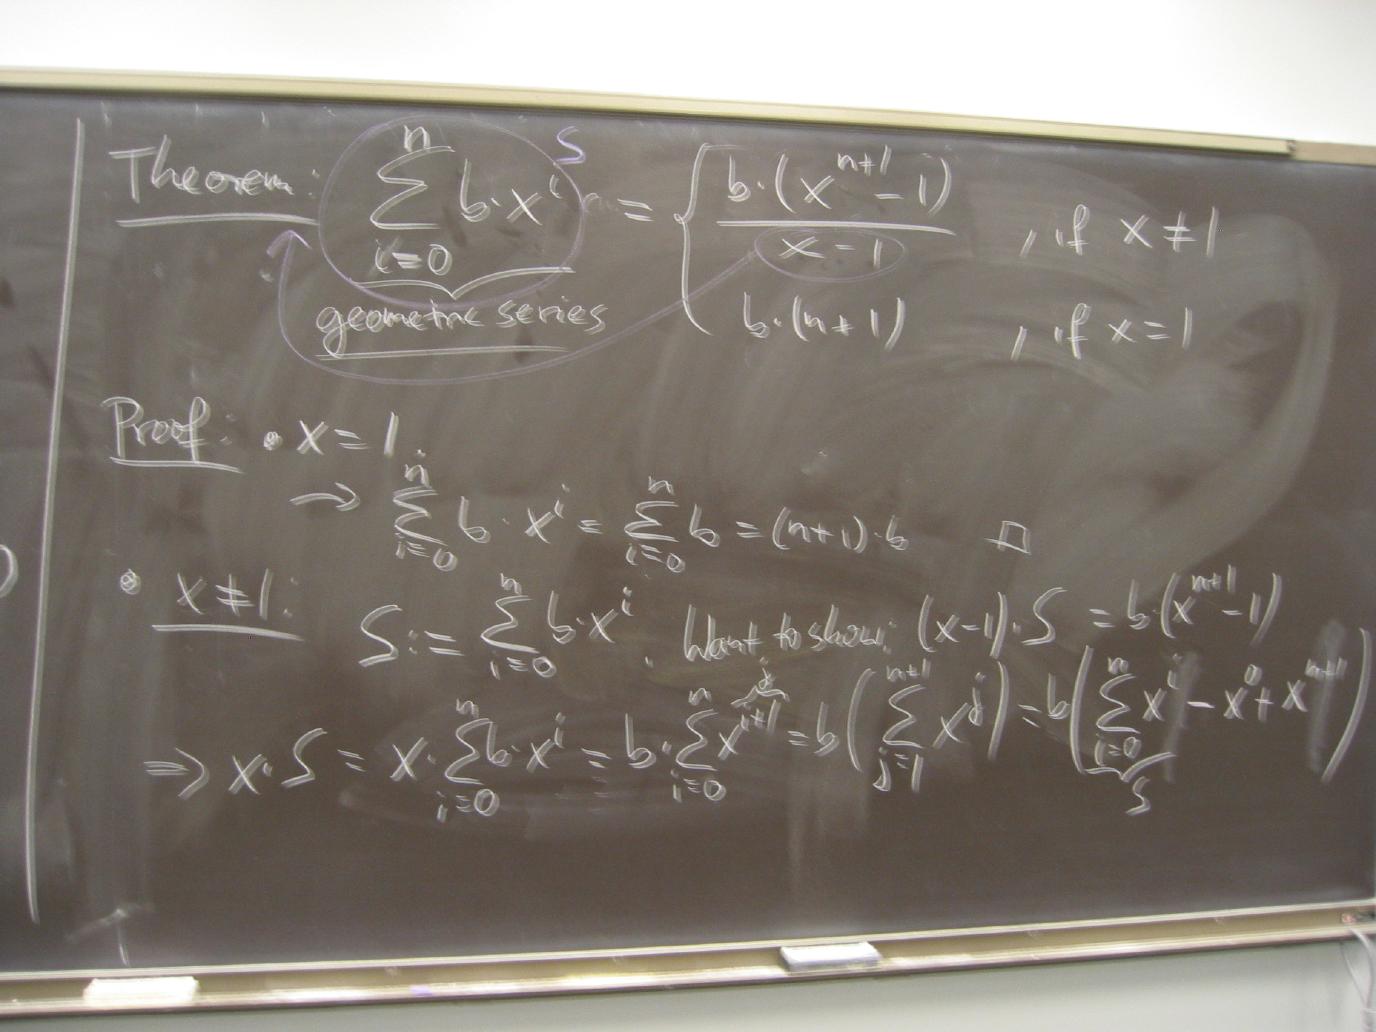 Theorem: \sum_{i=0}^{n} b·x^i = { b·(x^{n+1} - 1) / (x - 1) , if x ≠ 1
S
b·(n+1) , if x = 1
geometric series
Proof: • x = 1.
→ \sum_{i=0}^{n} b·x^i = \sum_{i=0}^{n} b = (n+1)·b □
• x ≠ 1: S := \sum_{i=0}^{n} b·x^i. Want to show: (x-1)·S = b·(x^{n+1} - 1)
⇒ x·S = x·\sum_{i=0}^{n} b·x^i = b·\sum_{i=0}^{n} x^{i+1} = b(\sum_{j=1}^{n+1} x^j) = b(\sum_{i=0}^{n} x^i - x^0 + x^{n+1})
j
S